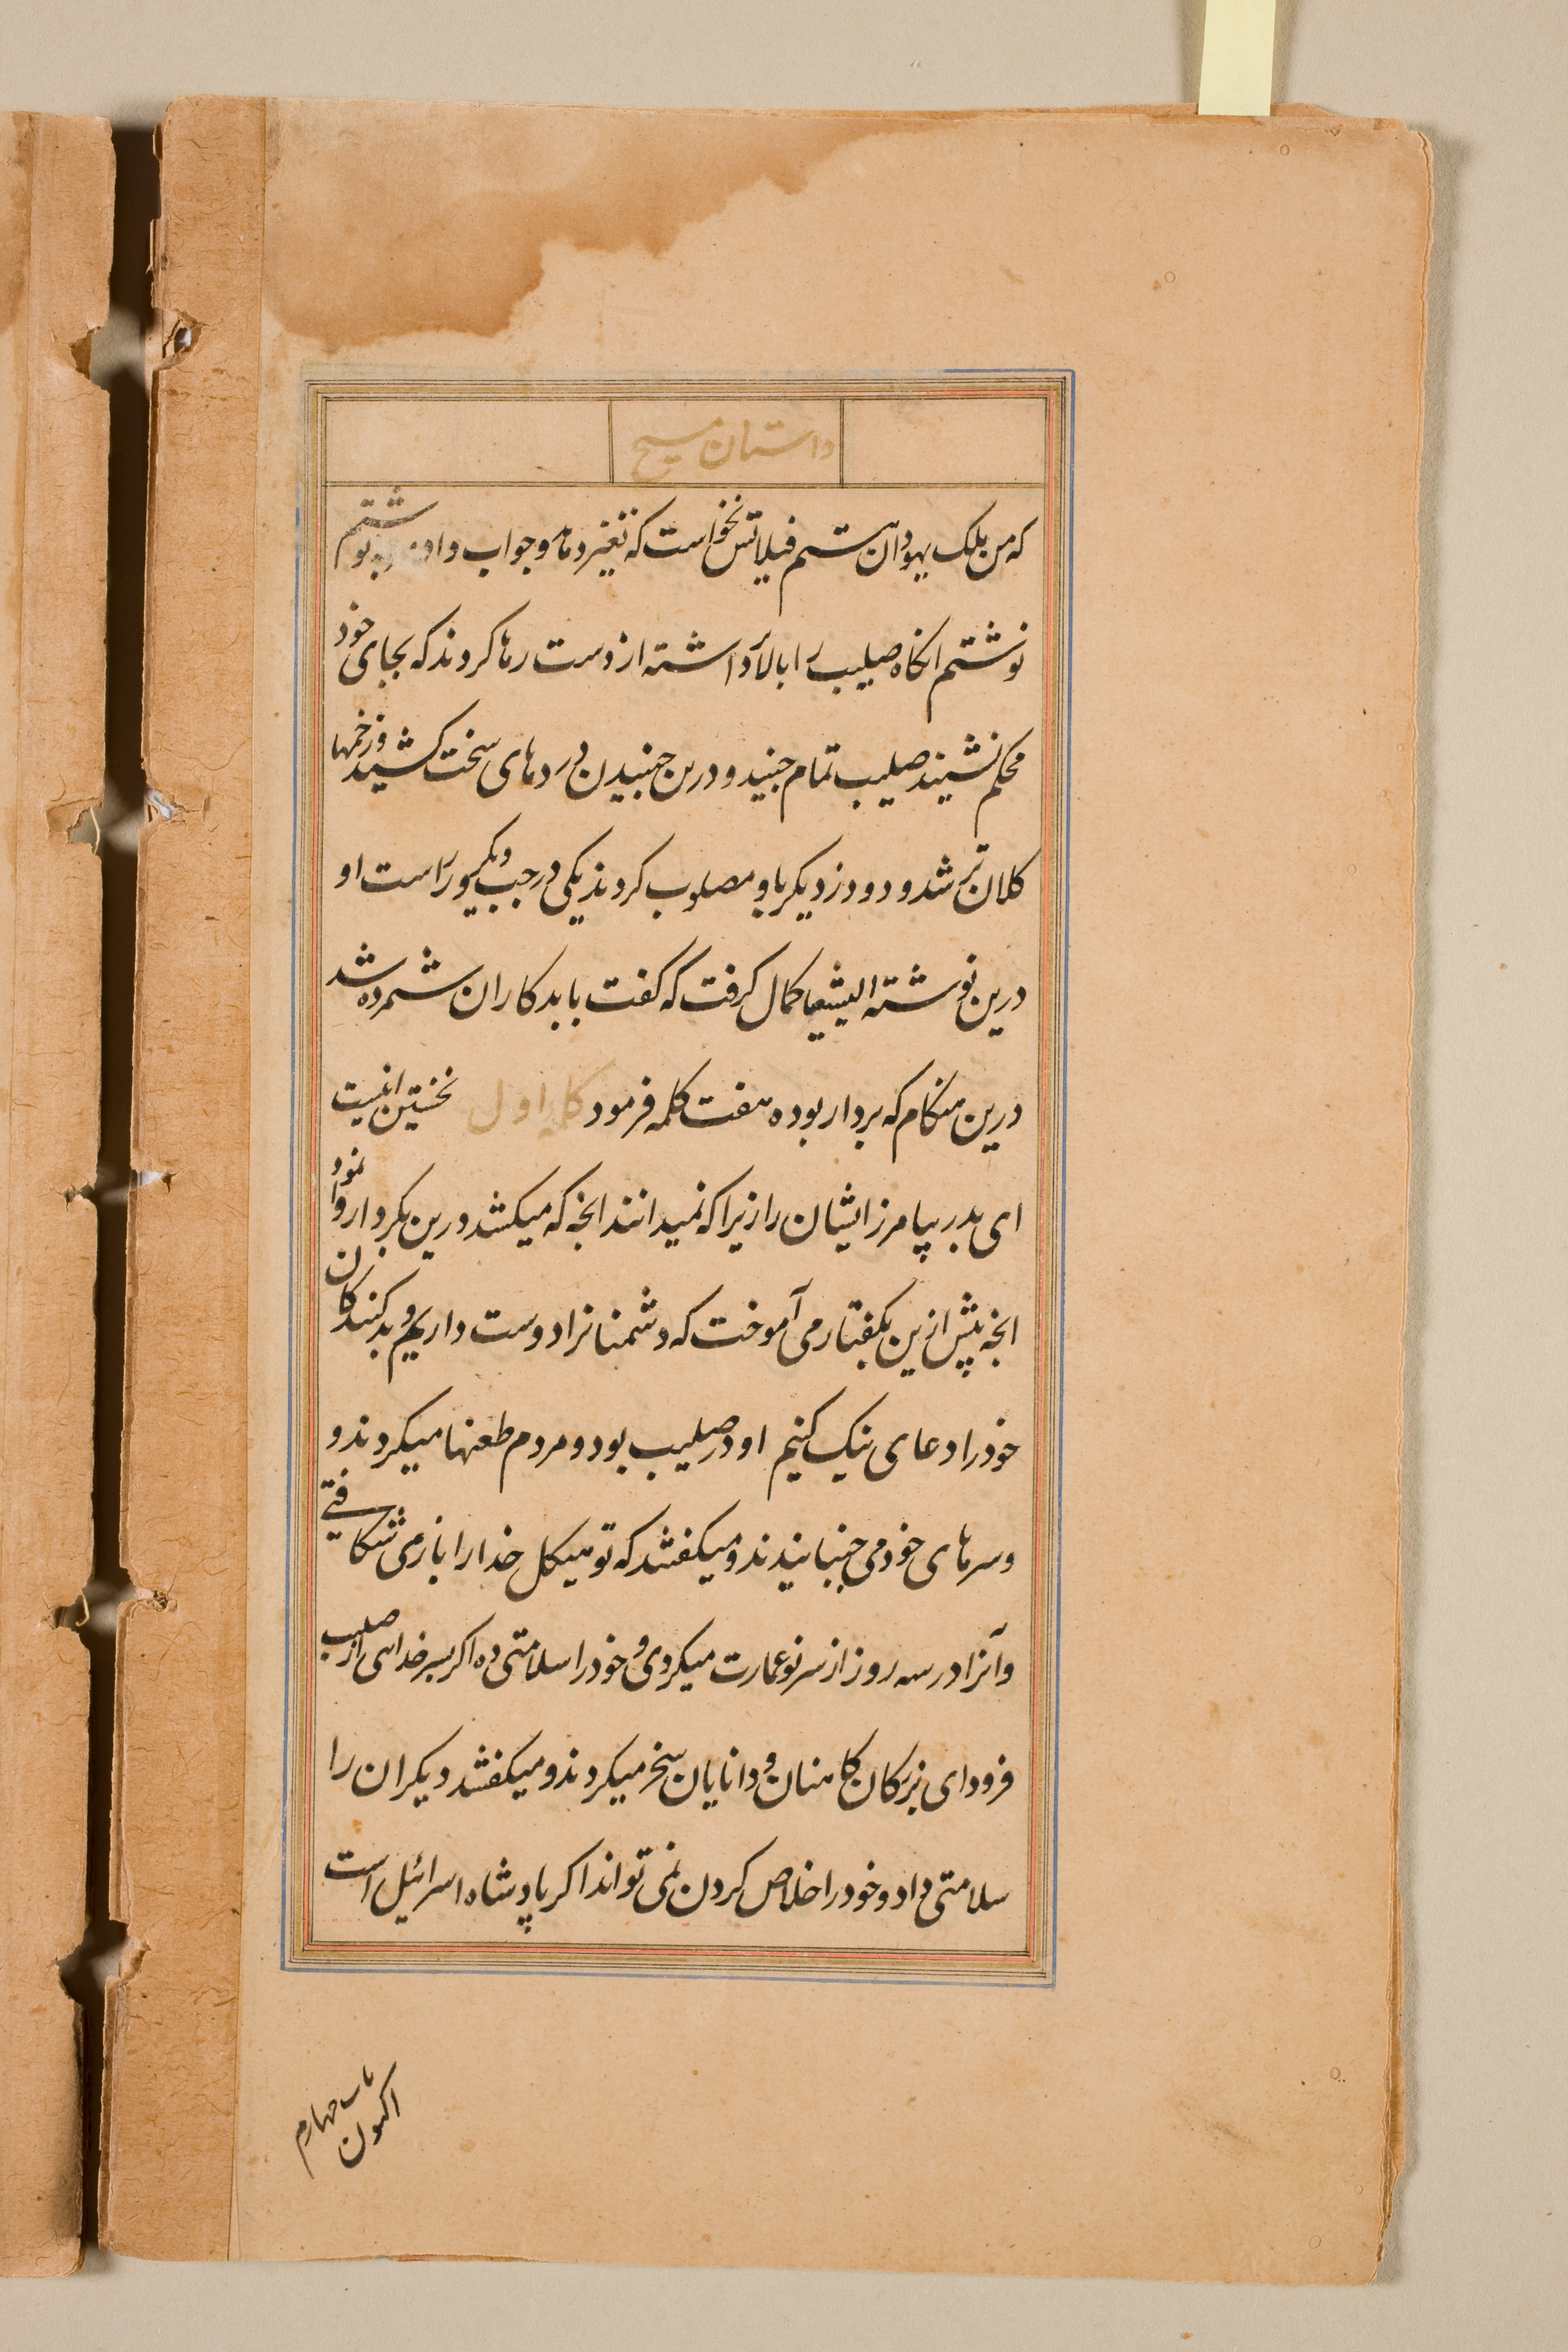 داستان مسیح
که من ملک یهودان هستم فیلاتس نخواست که تغیر دهد و جواب داد نوشتم
نوشتم انکاه صلیب را بالا داشته از دست رها کردند که بجای خود
محکم نشیند صلیب تمام جنبید و درین جنبیدن دردهای سخت کشید و زخمها
کلان تر شد و دو دزد دیکر باو مصلوب کردند یکی در چپ و دیکر در راست او
درین نوشته ایشعیا کمال کرفت که کفت با بدکاران شمرده شد
درین هنکام که بردار بوده هفت کلمه فرمود کلمه اول نخستین اینست
ای پدر بیامرز ایشان را زیرا که نمیدانند انچه که میکنند درین بکردار وا نمود
انچه پیش ازین بکفتار می آموخت که دشمنانرا دوست داریم و بد کنندکان
خود را دعای نیک کنیم او در صلیب بود و مردم طعنها میکردند و
و سرهای خود می جنبانیدند و میکفتند که تو هیکل خدا را باز می شکافتی
و آنرا در سه روز از سر نو عمارت میکردی خود را سلامتی ده اکر پسر خدایی از صلیب
فرود ای بزرکان کاهنان و دانایان سخر میکردند و میکفتند دیکران را
سلامتی داد و خود را خلاص کردن نمی تواند اکر پادشاه اسرائیل است
باب چهارم
اکنون